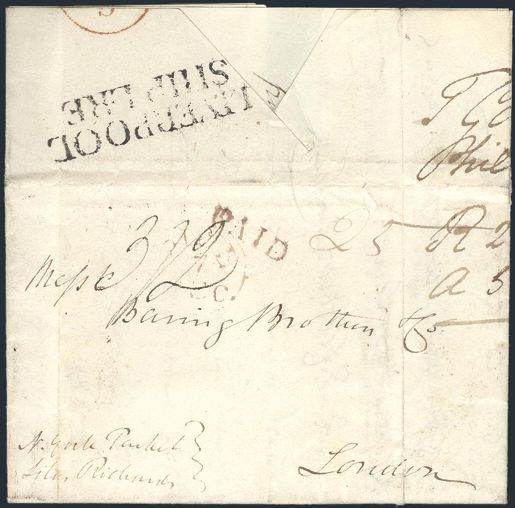 LIVERPOOL
SHIP LRE
Phil
PAID
3/2
25 R 2
A 5
Messrs
Baring Brothers & Co
N. York Packet
Silas Richards
London